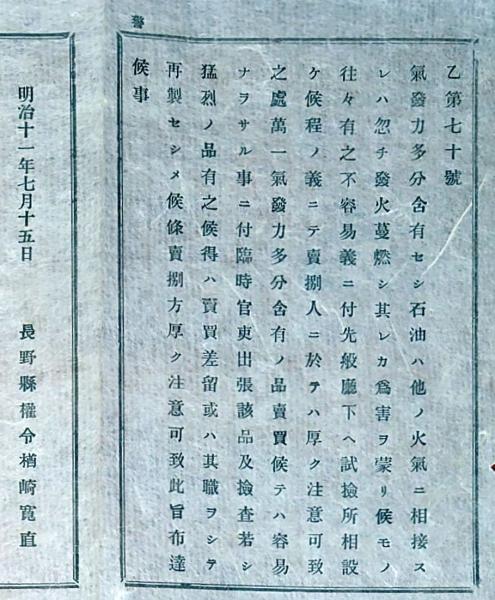 乙第七十號
氣發力多分含有セシ石油ハ他ノ火氣ニ相接ス
レハ忽チ發火蔓燃シ其レカ爲害ヲ蒙リ候モノ
往々有之不容易義ニ付先般廳下ヘ試撿所相設
ケ候程ノ義ニテ賣捌人ニ於テハ厚ク注意可致
之處萬一氣發力多分含有ノ品賣買候テハ容易
ナラサル事ニ付臨時官吏出張該品及撿査若シ
猛烈ノ品有之候得ハ賣買差留或ハ其職ヲシテ
再製セシメ候條賣捌方厚ク注意可致此旨布達
候事
警
明治十一年七月十五日 長野縣權令楢崎寬直